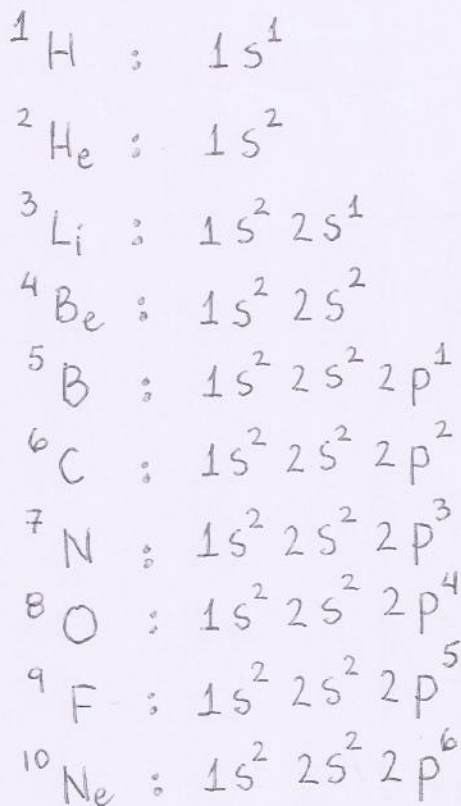 ¹H : 1s¹
²He : 1s²
³Li : 1s² 2s¹
⁴Be : 1s² 2s²
⁵B : 1s² 2s² 2p¹
⁶C : 1s² 2s² 2p²
⁷N : 1s² 2s² 2p³
⁸O : 1s² 2s² 2p⁴
⁹F : 1s² 2s² 2p⁵
¹⁰Ne : 1s² 2s² 2p⁶